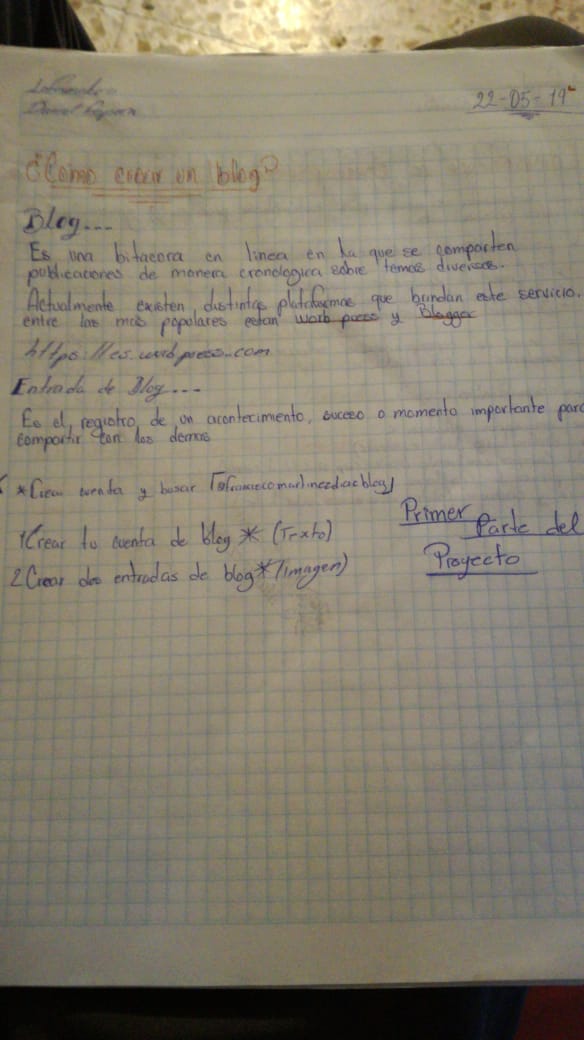 22-05-19
¿Como crear un blog?
Blog...
Es una bitacora en linea en la que se comparten
publicaciones de manera cronologica sobre temas diversos.
Actualmente existen, distintas plataformas que brindan este servicio.
entre las mas populares estan word press y Blogger
https://es.wordpress.com
Entrada de Blog...
Es el registro de un acontecimiento, suceso o momento importante para
compartir con los demas
* Crear cuenta y buscar
1 Crear tu cuenta de blog * (Texto)
2 Crear dos entradas de blog * (imagen)
Primer Parte del
Proyecto